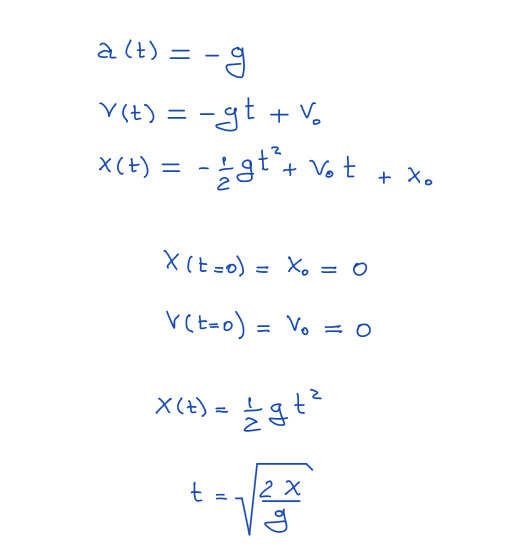 a(t) = -g
v(t) = -gt + v₀
x(t) = -½gt² + v₀t + x₀
x(t=0) = x₀ = 0
v(t=0) = v₀ = 0
x(t) = ½gt²
t = √(2x/g)